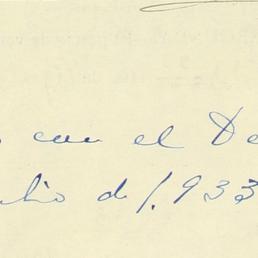 con el De
lio de 1.933